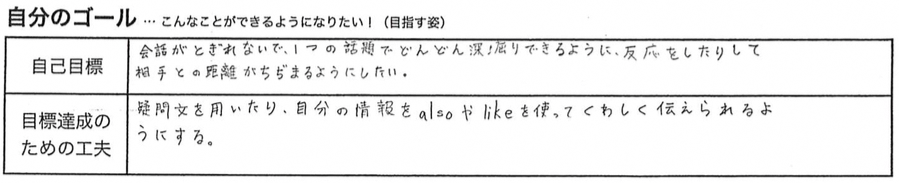 自分のゴール … こんなことができるようになりたい！（目指す姿）
自己目標
会話がとぎれないで、1つの話題でどんどん深掘りできるように、反応をしたりして
相手との距離がちぢまるようにしたい。
目標達成の
ための工夫
疑問文を用いたり、自分の情報をalsoやlikeを使ってくわしく伝えられるよ
うにする。